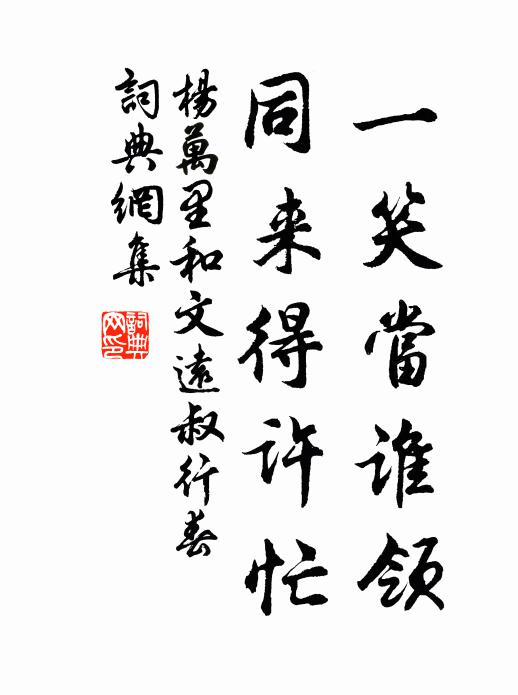 一笑當誰領
同来得許忙
楊萬里和文遠叔行春
詞典網集
詞典网印